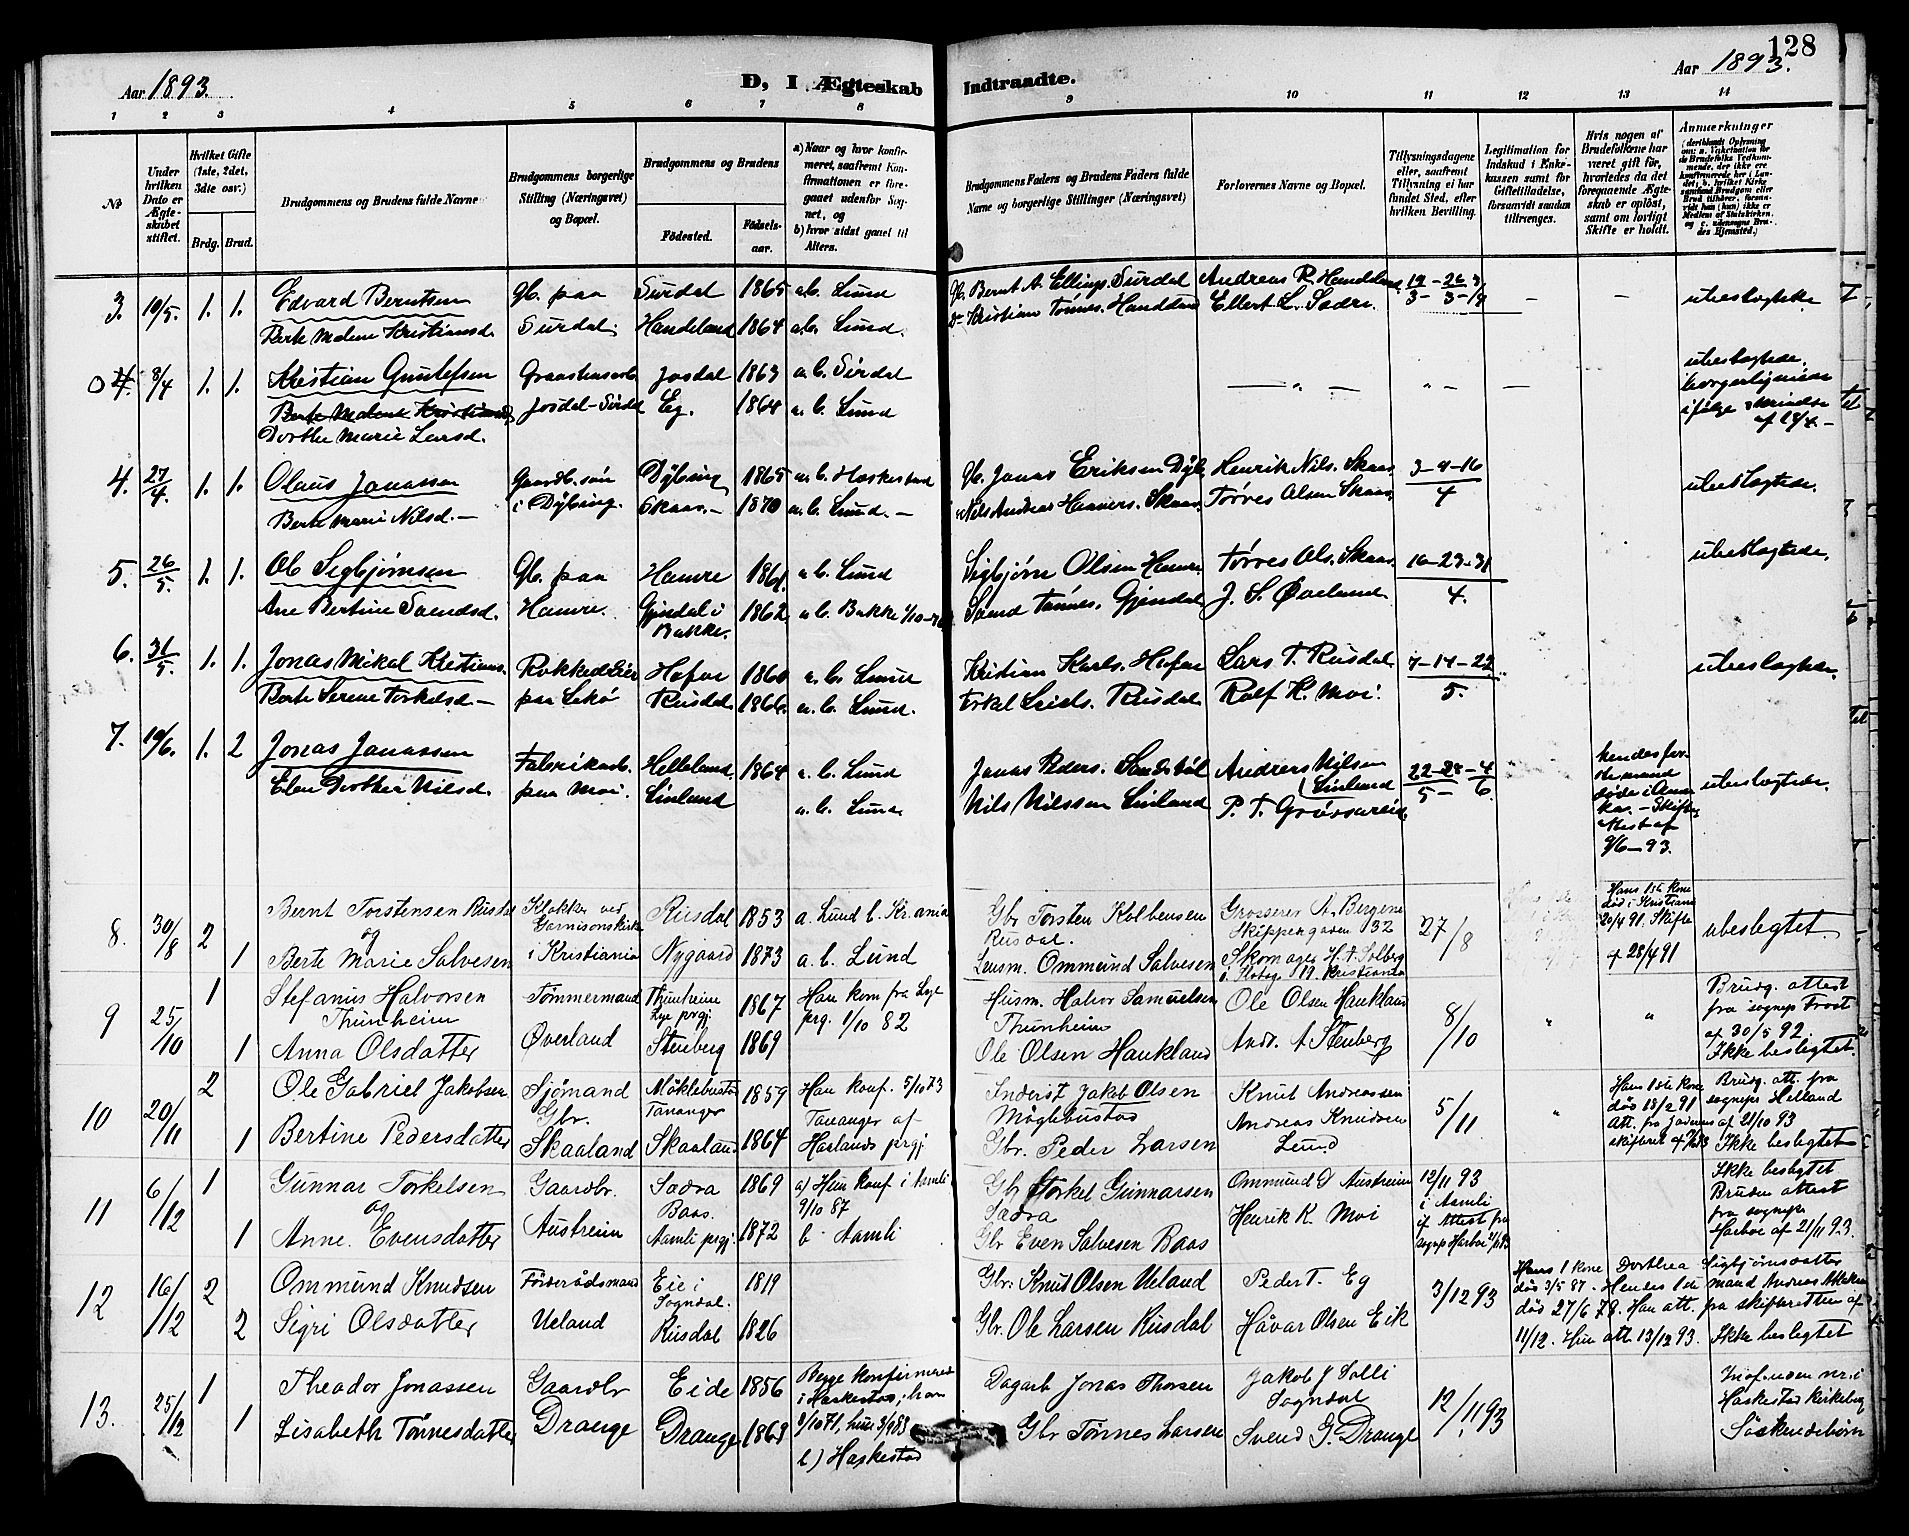 128
Aar 1893.
D, I Ægteskab Indtraadte.
Aar 1893.
1 2 3 4 5 6 7 8 9 10 11 12 13 14
No
Under hvilken Dato er Ægteskabet stiftet.
Hvilket Gifte (1ste, 2det, 3die osv.)
Brdg. Brud.
Brudgommens og Brudens fulde Navne
Brudgommens borgerlige Stilling (Næringsvei) og Bopæl.
Brudgommens og Brudens
Fødested.
Fødselsaar.
a) Naar og hvor konfirmeret, saafremt Konfirmationen er foregaaet udenfor Sognet, og
b) hvor sidst gaaet til Alters.
Brudgommens Faders og Brudens Faders fulde Navne og borgerlige Stillinger (Næringsvei)
Forlovernes Navne og Bopæl.
Tillysningsdagene eller, saafremt Tillysning ei har fundet Sted, efter hvilken Bevilling.
Legitimation for Indskud i Enkekassen samt for Giftetilladelse, forsaavidt saadan tiltrænges.
Hvis nogen af Brudefolkene har været gift før, hvorledes da det foregaaende Ægteskab er opløst, samt om lovligt Skifte er holdt.
Anmærkninger
3. 19/5. 1. 1. Edvard Berntsen Gb. paa Surdal 1865 a.b. Lund Gb. Bernt A. Ellings. Surdal Andreas R. Handeland — — ubeslægtede
Berte Malene Kristiansd. Surdal. Handeland 1864 a.b. Lund. Kristian Tønnes. Handeland Ellert L. Sædre.
8/4 1. 1. Kristian Gunlefsen Graastensarb. Josdal 1863 a.b. Sirdal ubeslægtede.
Berte Malene Kristiansd. Josdal-Sirdal Eg. 1864 a.b. Lund
Dorthe Marie Larsd.
4. 27/4. 1. 1. Olaus Jonassen Gaardb. søn Dybing 1865 a.b. Heskestad Gb. Jonas Eriksen Dyb. Henrik Nils. Skaas 3-9-16 ubeslægtede.
Berte Marie Nilsd. — i Dybing. Skaas. — 1870 a.b. Lund. — Nils Andreas Skaas Tørres Olsen Skaas 4
5. 26/5. 1. 1. Ole Sigbjørnsen Gb. paa Hamre 1861. a.b. Lund Sigbjørn Olsen Hamre Tørres Ols. Skaas 16-23-31 ubeslægtede.
Ane Bertine Svendsd. Hamre. Gjendal i Bakke. 1862 a.b. Bakke Svend Tønnes. Gjendal J. S. Øveland 4.
6. 31/5. 1. 1. Jonas Mikal Kristians. Rokkedreier Hofor 1860 a.b. Lund Kristian Karls. Hofor Lars T. Rusdal 7-14-22 ubeslægtede.
Berte Serene Torkelsd. — paa Rusdal 1866. a.b. Lund. Rusdal Rolf K. Moi. 5.
7. 19/6. 1. 2 Jonas Jonassen Fabrikarb. Helleland. 1864 a.b. Lund Jonas Peders. Sandsbøl Andreas Nilsen Linland 22-28-4 ubeslægtede.
Elen Dorthea Nilsd. paa Moi. Linland a.b. Lund Nils Nilssen Linland P. T. Grøssereid. 5- 6.
9/6-93.
8. 30/8 2 Bernt Torstensen Rusdal Klokker ved Garnisonskirken Rusdal 1853 a. Lund b. Kr.ania Gbr Torsten Kolbensen Rusdal. Grosserer A. Bergene Skippergaden 32 27/8 Hans 1ste kone død i Kristiania 20/4 91. Skifte ubeslegtet.
og
1 Berte Marie Salvesen i Kristiania Nygaard 1873 a.b. Lund Lensm. Ommund Salvesen Skomager H. A. Solberg Kristiania af 28/4 91
9 25/10 1 Stefanus Halvorsen Thunheim Tømmermand Thunheim Lye prgj. 1867 Han kom fra Lye prg. 1/10 82 Husm. Halvor Samuelsen Thunheim Ole Olsen Haukland 8/10 " " Brudg. attest fra sognepr Frost af 30/5 92.
1 Anna Olsdatter Øverland Stenberg 1869 Ole Olsen Haukland Andr. A. Stenberg Ikke beslegtet.
10 20/11 2 Ole Gabriel Jakobsen Sjømand Gbr. Møklebustad Tananger 1859 Han konf. 5/10 73 Inderst Jakob Olsen Møglebustad Knut Andreassen 5/11 " Hans 1ste kone død 18/2 91 Brudg. att. fra sognepr Hetland af 21/10 93
1 Bertine Pedersdatter Skaaland Skaaland 1864 Tananger af Haalands prgj Gbr. Peder Larsen Andreas Knudsen Lund Ikke beslegtet
11 6/12 1 Gunnar Torkelsen Gaardbr. Sædra 1869 a) Hun konf i Aamli 9/10 87 Gbr Torkel Gunnarsen Sædra Ommund O Austheim 12/11 93 i Aamli Ikke beslegtet
og
1 Anne Evensdatter Austheim Baas. Aamli prgj. 1872 b. Aamli Gbr Even Salvesen Baas Henrik K. Moi Bruden attest fra sognepr Harboe af 21/11 93.
12 16/12 2 Ommund Knudsen Føderådsmand Eie i Sogndal. 1819 Gbr. Knut Olsen Ueland Peder T. Eg 3/12 93 Hans 1 kone Dorthea Sigbjørnsdatter død 3/5 87. Hendes 1ste mand Andreas
2 Sigri Olsdatter Ueland Rusdal 1826 Gbr. Ole Larsen Rusdal Håvar Olsen Eik død 27/6 78. Han att. fra skifteretten af 11/12. Hun att. 13/12 93. Ikke beslegtet
13. 25/12 1 Theodor Jonassen Gaardbr Eide 1856 Begge konfirmeret i Heskestad, han Dagarb Jonas Thorsen Jakob J Solli Sogndal 12/11 93 Indf. uden nr. i Heskestad kirkebog
1 Lisabeth Tønnesdatter Drange Drange 1863 9/10 71, hun b) Heskestad Gbr Tønnes Larsen Svend G. Drange Søskendebørn